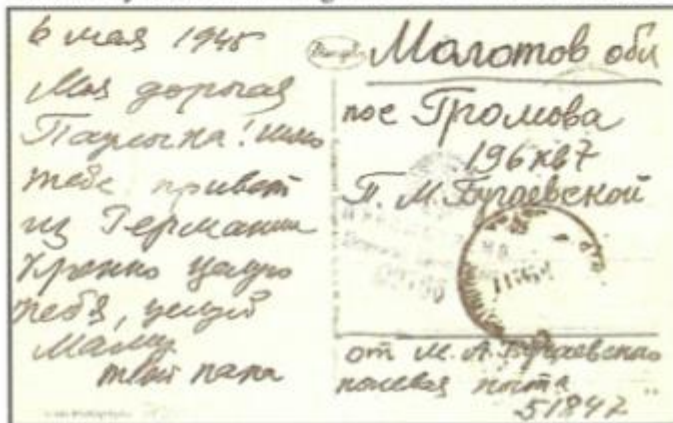 6 мая 1945
Моя дорогая
шлю
тебе привет
из Германии
Крепко целую
тебя, целуй
Маму
твой папа
Молотов обл
пос Громова
196 кв 7
П. М. Бугаевской
от М. А. Бугаевского
полевая почта
51847